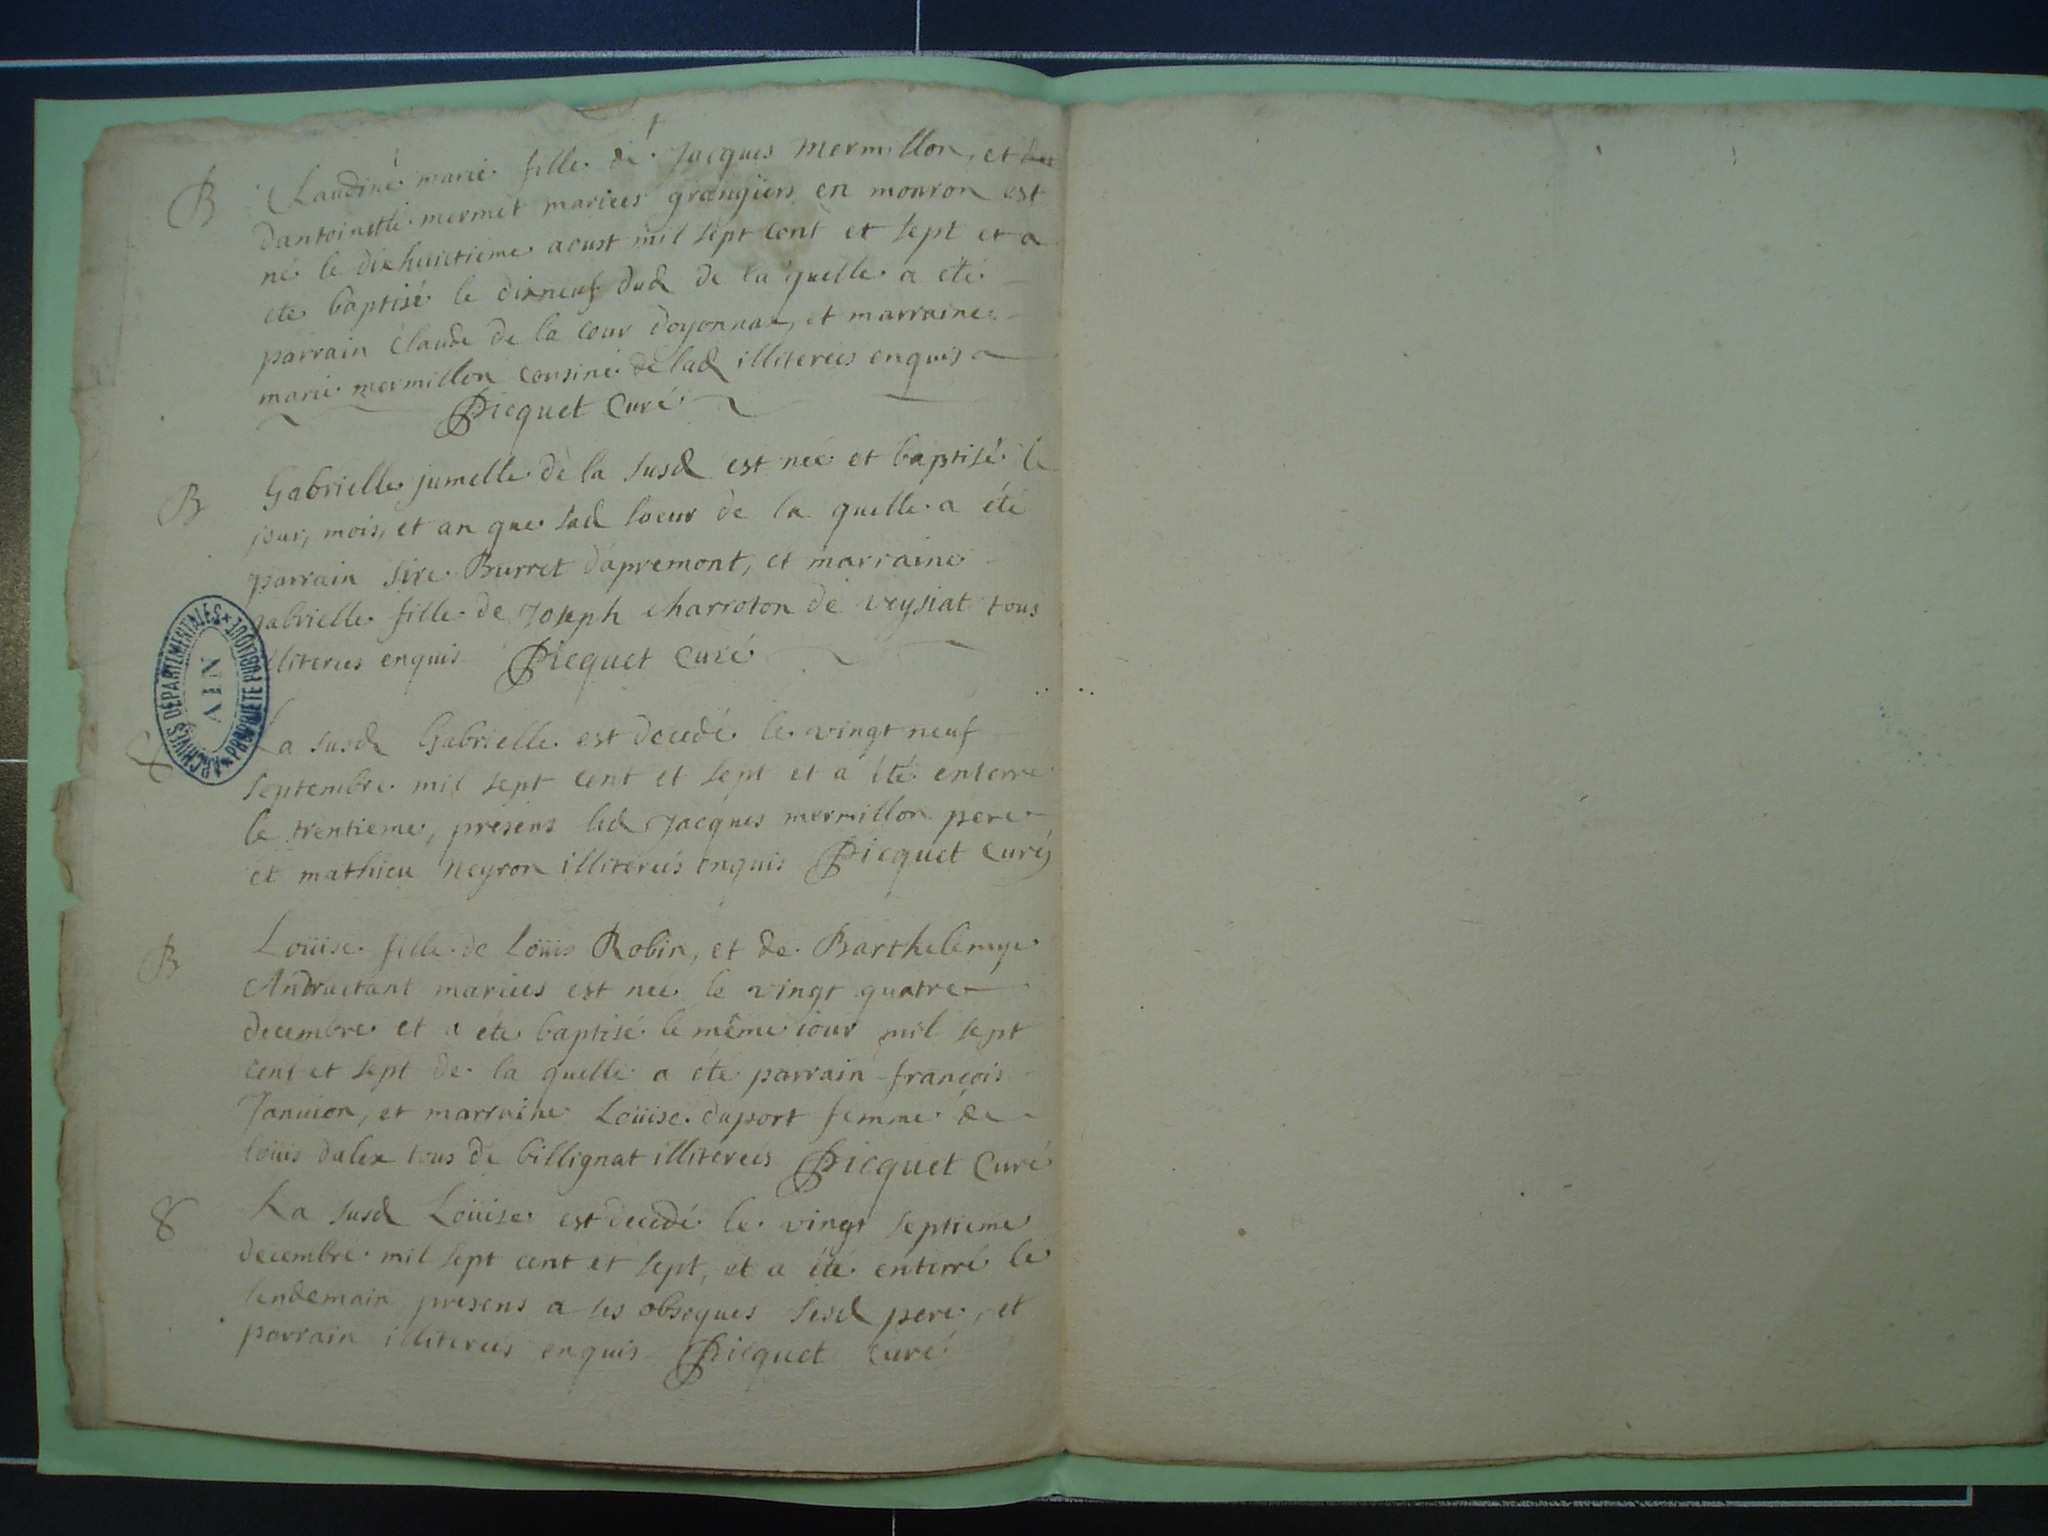 B Claudine marie fille de Jacques mermillon, et
dantoinette mermet mariees grangiers en monron est
né le dixhuictieme aoust mil sept cent et sept et a
ete baptisé le dixneuf dud de la quelle a été
parrain Claude de la cour doyonnax, et marraine
marie mermillon cousine de lad illiterees enquis
Picquet Curé
B Gabrielle jumelle de la susd est neé et baptisé le
jour, mois, et an que sad soeur de la quelle a été
parrain sire Burret dapremont, et marraine
gabrielle fille de Joseph charroton de veysiat tous
illiterees enquis Picquet Curé
ARCHIVES DÉPARTEMENTALES
AIN
PROPRIÉTÉ PUBLIQUE
La susd Gabrielle est decedé le vingt neuf
septembre mil sept cent et sept et a été enterré
le trentieme, presens led Jacques mermillon pere
et mathieu neyron illiterees enquis Picquet Curé
B Loüise fille de Loüis Robin, et de Barthelemye
mariees est nee le vingt quatre
decembre et a été baptisé le même iour mil sept
cent et sept de la quelle a été parrain françois
Januion, et marraine Loüise duport femme de
loüis dalex tous de billignat illiterees Picquet Curé
La susd Loüise est decedé le vingt septieme
decembre mil sept cent et sept, et a été enterré le
lendemain presens a ses obseques sesd pere, et
parrain illiterees enquis Picquet Curé